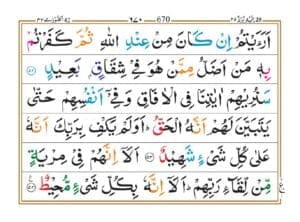 670 ٦٧٠
اَرَءَيْتُمْ اِنْ كَانَ مِنْ عِنْدِ اللّٰهِ ثُمَّ كَفَرْتُمْ
بِهٖ مَنْ اَضَلُّ مِمَّنْ هُوَ فِيْ شِقَاقٍۭ بَعِيْدٍ ٥٢
سَنُرِيْهِمْ اٰيٰتِنَا فِي الْاٰفَاقِ وَفِيْۤ اَنْفُسِهِمْ حَتّٰى
يَتَبَيَّنَ لَهُمْ اَنَّهُ الْحَقُّ ؕ اَوَلَمْ يَكْفِ بِرَبِّكَ اَنَّهٗ
عَلٰى كُلِّ شَيْءٍ شَهِيْدٌ ٥٣ اَلَاۤ اِنَّهُمْ فِيْ مِرْيَةٍ
مِّنْ لِّقَآءِ رَبِّهِمْ ؕ اَلَاۤ اِنَّهٗ بِكُلِّ شَيْءٍ مُّحِيْطٌ ٥٤